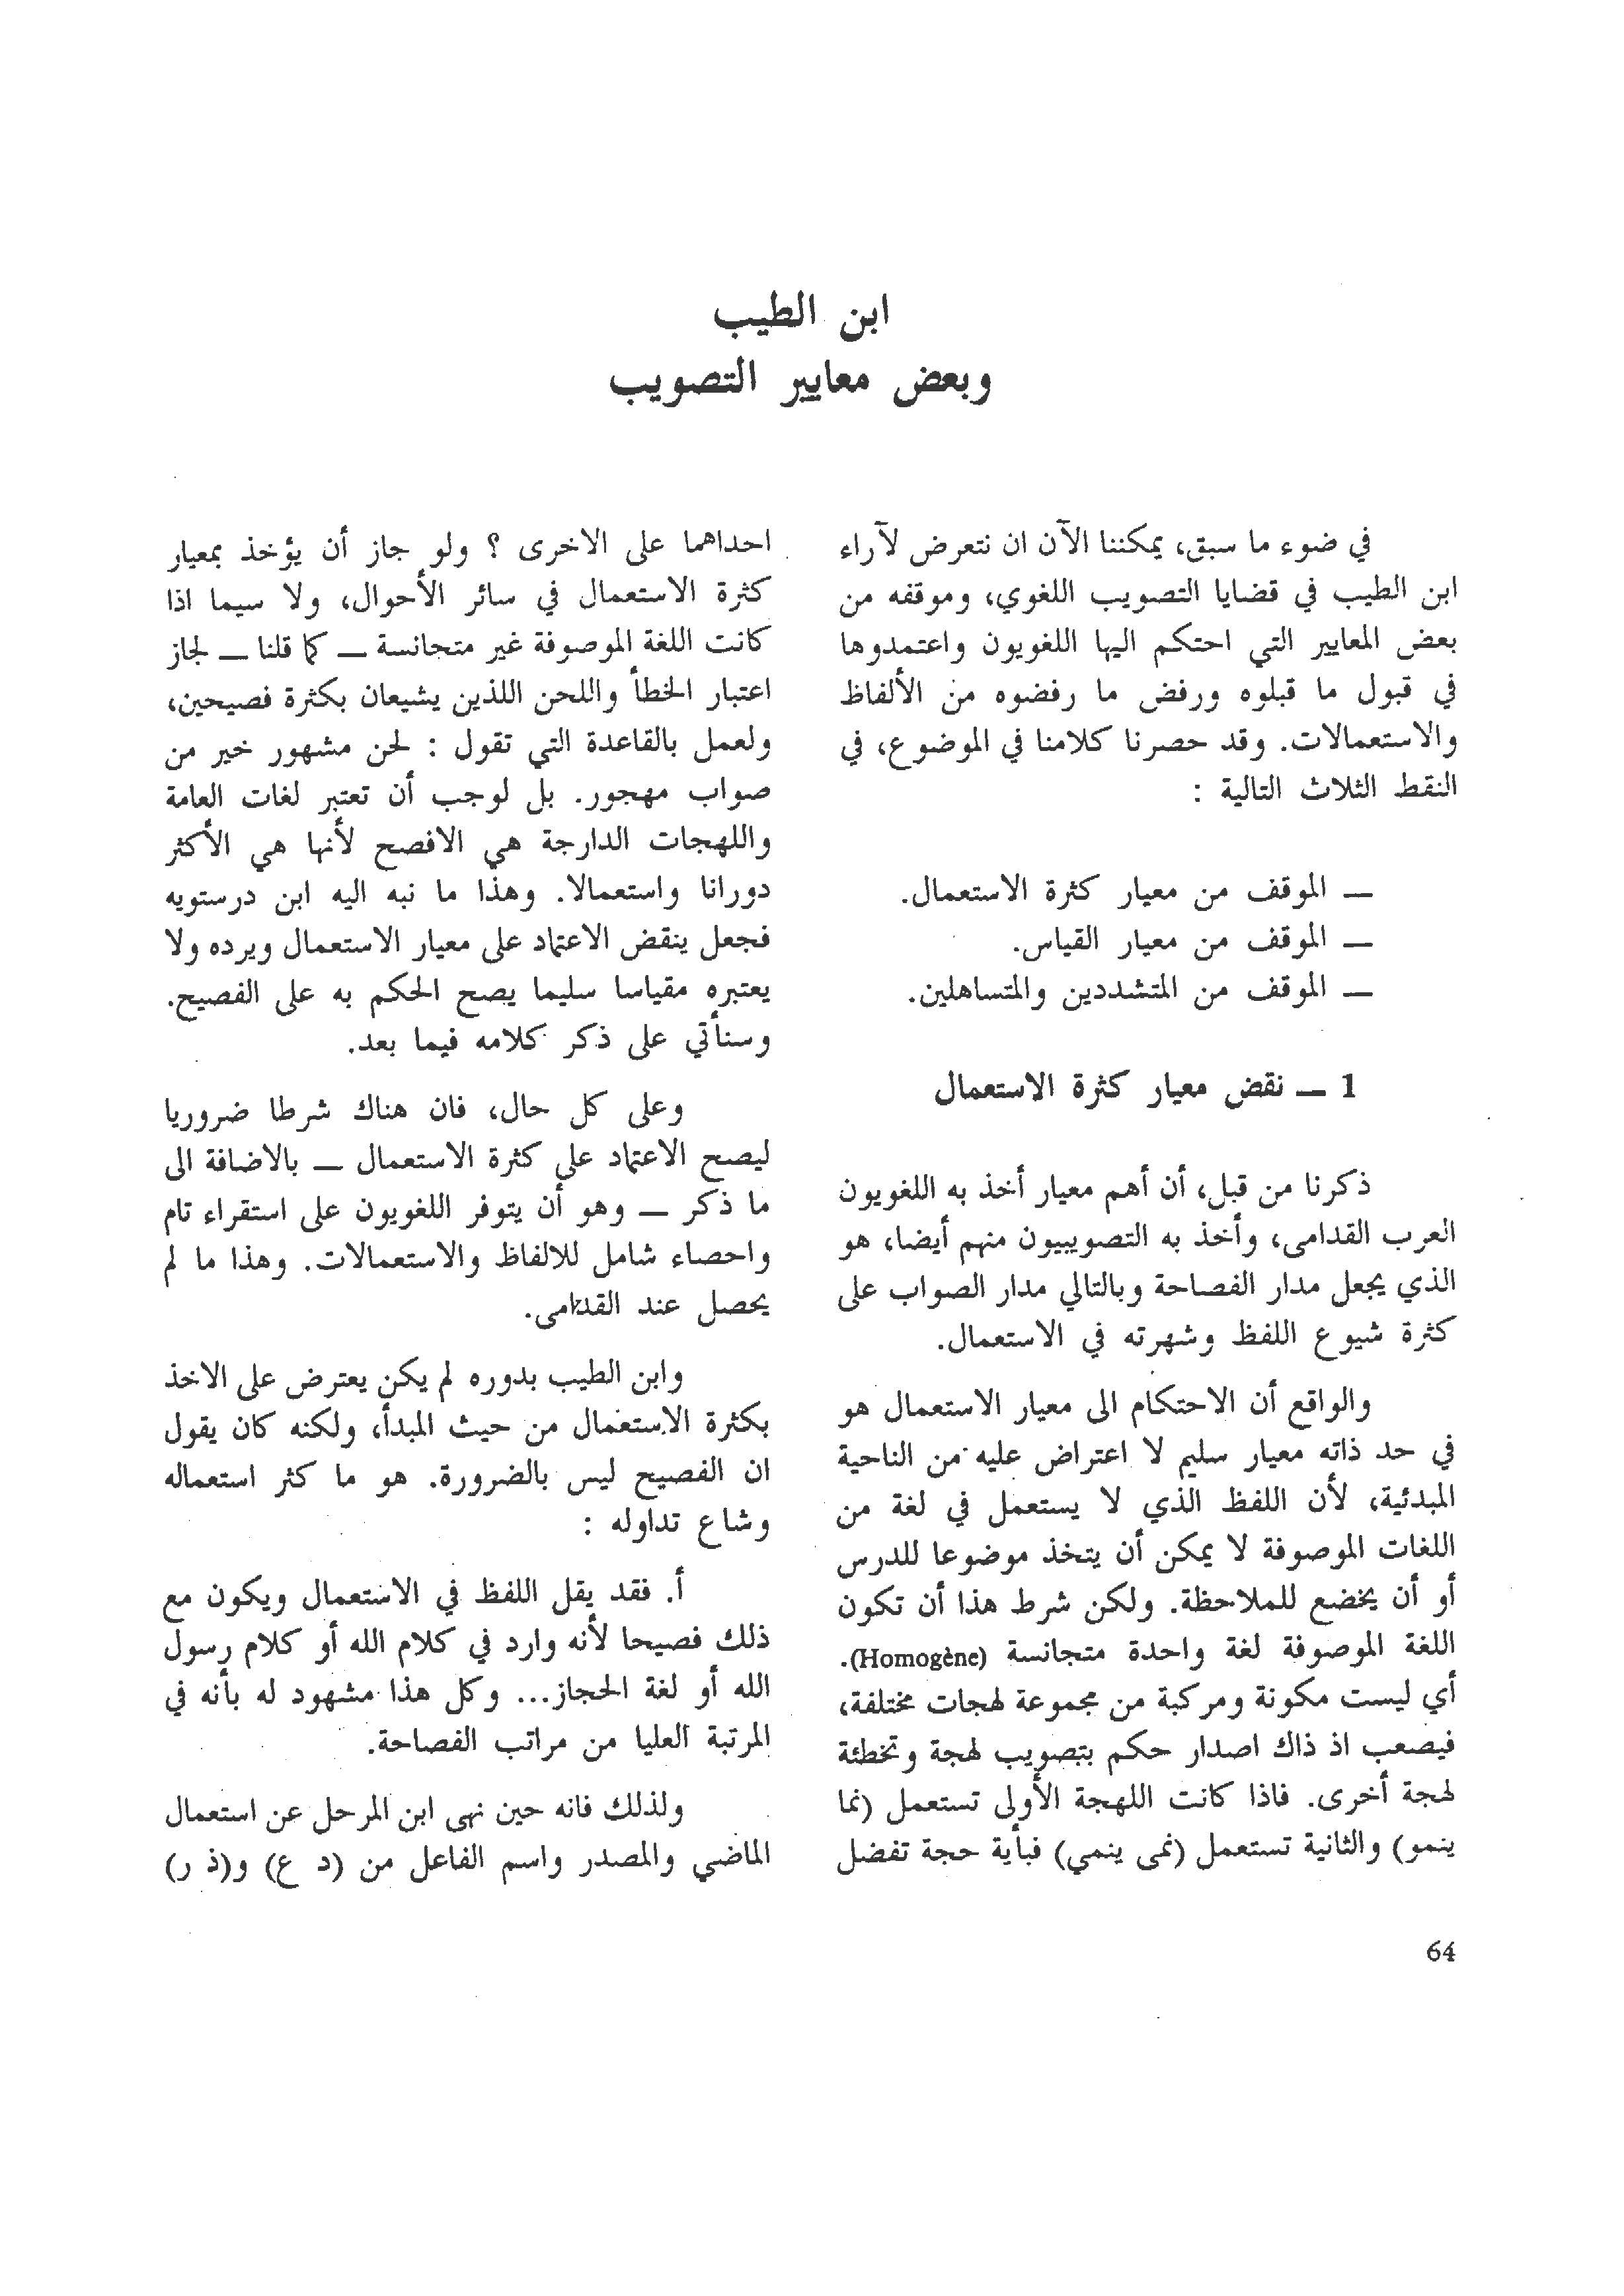 ابن الطيب
وبعض معايير التصويب
في ضوء ما سبق، يمكننا الآن ان نتعرض لآراء
ابن الطيب في قضايا التصويب اللغوي، وموقفه من
بعض المعايير التي احتكم اليها اللغويون واعتمدوها
في قبول ما قبلوه ورفض ما رفضوه من الألفاظ
والاستعمالات. وقد حصرنا كلامنا في الموضوع، في
النقط الثلاث التالية :
— الموقف من معيار كثرة الاستعمال.
— الموقف من معيار القياس.
— الموقف من المتشددين والمتساهلين.
1 — نقض معيار كثرة الاستعمال
ذكرنا من قبل، أن أهم معيار أخذ به اللغويون
العرب القدامى، وأخذ به التصويبيون منهم أيضا، هو
الذي يجعل مدار الفصاحة وبالتالي مدار الصواب على
كثرة شيوع اللفظ وشهرته في الاستعمال.
والواقع أن الاحتكام الى معيار الاستعمال هو
في حد ذاته معيار سليم لا اعتراض عليه من الناحية
المبدئية، لأن اللفظ الذي لا يستعمل في لغة من
اللغات الموصوفة لا يمكن أن يتخذ موضوعا للدرس
أو أن يخضع للملاحظة. ولكن شرط هذا أن تكون
اللغة الموصوفة لغة واحدة متجانسة (Homogène).
أي ليست مكونة ومركبة من مجموعة لهجات مختلفة،
فيصعب اذ ذاك اصدار حكم بتصويب لهجة وتخطئة
لهجة أخرى. فاذا كانت اللهجة الأولى تستعمل (نما
ينمو) والثانية تستعمل (نمى ينمي) فبأية حجة تفضل
احداهما على الاخرى ؟ ولو جاز أن يؤخذ بمعيار
كثرة الاستعمال في سائر الأحوال، ولا سيما اذا
كانت اللغة الموصوفة غير متجانسة — كما قلنا — لجاز
اعتبار الخطأ واللحن اللذين يشيعان بكثرة فصيحين،
ولعمل بالقاعدة التي تقول : لحن مشهور خير من
صواب مهجور. بل لوجب أن تعتبر لغات العامة
واللهجات الدارجة هي الافصح لأنها هي الأكثر
دورانا واستعمالا. وهذا ما نبه اليه ابن درستويه
فجعل ينقض الاعتماد على معيار الاستعمال ويرده ولا
يعتبره مقياسا سليما يصح الحكم به على الفصيح.
وسنأتي على ذكر كلامه فيما بعد.
وعلى كل حال، فان هناك شرطا ضروريا
ليصح الاعتماد على كثرة الاستعمال — بالاضافة الى
ما ذكر — وهو أن يتوفر اللغويون على استقراء تام
واحصاء شامل للالفاظ والاستعمالات. وهذا ما لم
يحصل عند القدامى.
وابن الطيب بدوره لم يكن يعترض على الاخذ
بكثرة الاستعمال من حيث المبدأ، ولكنه كان يقول
ان الفصيح ليس بالضرورة. هو ما كثر استعماله
وشاع تداوله :
أ. فقد يقل اللفظ في الاستعمال ويكون مع
ذلك فصيحا لأنه وارد في كلام الله أو كلام رسول
الله أو لغة الحجاز... وكل هذا مشهود له بأنه في
المرتبة العليا من مراتب الفصاحة.
ولذلك فانه حين نهى ابن المرحل عن استعمال
الماضي والمصدر واسم الفاعل من (د ع) و(ذ ر)
64